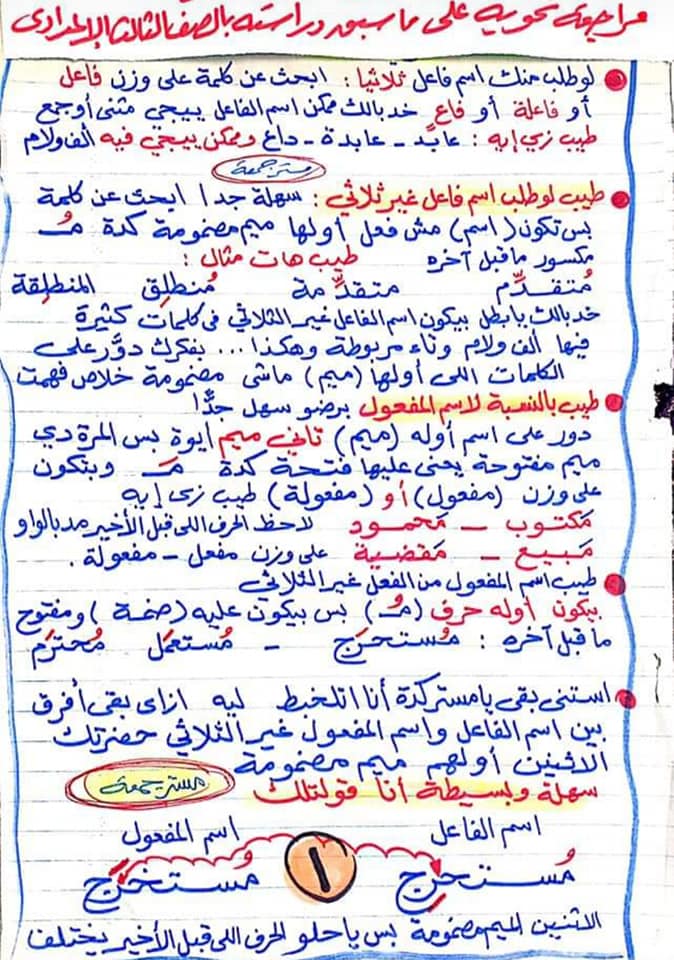 مراجعة نحوية على ما سبق دراسته بالصف الثالث الإعدادى
لو طلب منك اسم فاعل ثلاثيا : ابحث عن كلمة على وزن فاعل
أو فاعلة أو فاعٍ خد بالك ممكن اسم الفاعل ييجي مثنى أو جمع
طيب زي إيه : عابد - عابدة - داعٍ وممكن ييجي فيه ألف ولام
مستر جمعة
طيب لو طلب اسم فاعل غير ثلاثي : سهلة جدا ابحث عن كلمة
بس تكون (اسم) مش فعل أولها ميم مضمومة كدة مُـ
مكسور ما قبل آخره طيب هات مثال :
مُتقدِّم متقدِّمة مُنطلِق المنطلِقة
خد بالك يا بطل بيكون اسم الفاعل غير الثلاثي فى كلمات كثيرة
فيها ألف ولام وتاء مربوطة وهكذا ... بفكرك دوَّر على
الكلمات اللى أولها (ميم) ماشى مضمومة خلاص فهمت
طيب بالنسبة لاسم المفعول برضو سهل جدًّا
دور على اسم أوله (ميم) تاني ميم أيوة بس المرة دي
ميم مفتوحة يعنى عليها فتحة كدة مَـ وبتكون
على وزن (مفعول) أو (مفعولة) طيب زى إيه
مَكتوب - مَحمـود لاحظ الحرف اللى قبل الأخير مد بالواو
مَبيع - مَقضية على وزن مفعل - مفعولة .
طيب اسم المفعول من الفعل غير الثلاثى
بيكون أوله حرف (مُـ) بس بيكون عليه (ضمة) ومفتوح
ما قبل آخره : مُستخرَج - مُستعمَل مُحترَم
استنى بقى يا مستر كدة أنا اتلخبط ليه ازاى بقى أفرق
بين اسم الفاعل واسم المفعول غير الثلاثي حضرتك
الاثنين أولهم ميم مضمومة
سهلة وبسيطة أنا قولتلك
مستر جمعة
اسم الفاعل اسم المفعول
مُستخرِج ١ مُستخرَج
الاثنين الميم مضمومة بس يا حلو الحرف اللى قبل الأخير يختلف